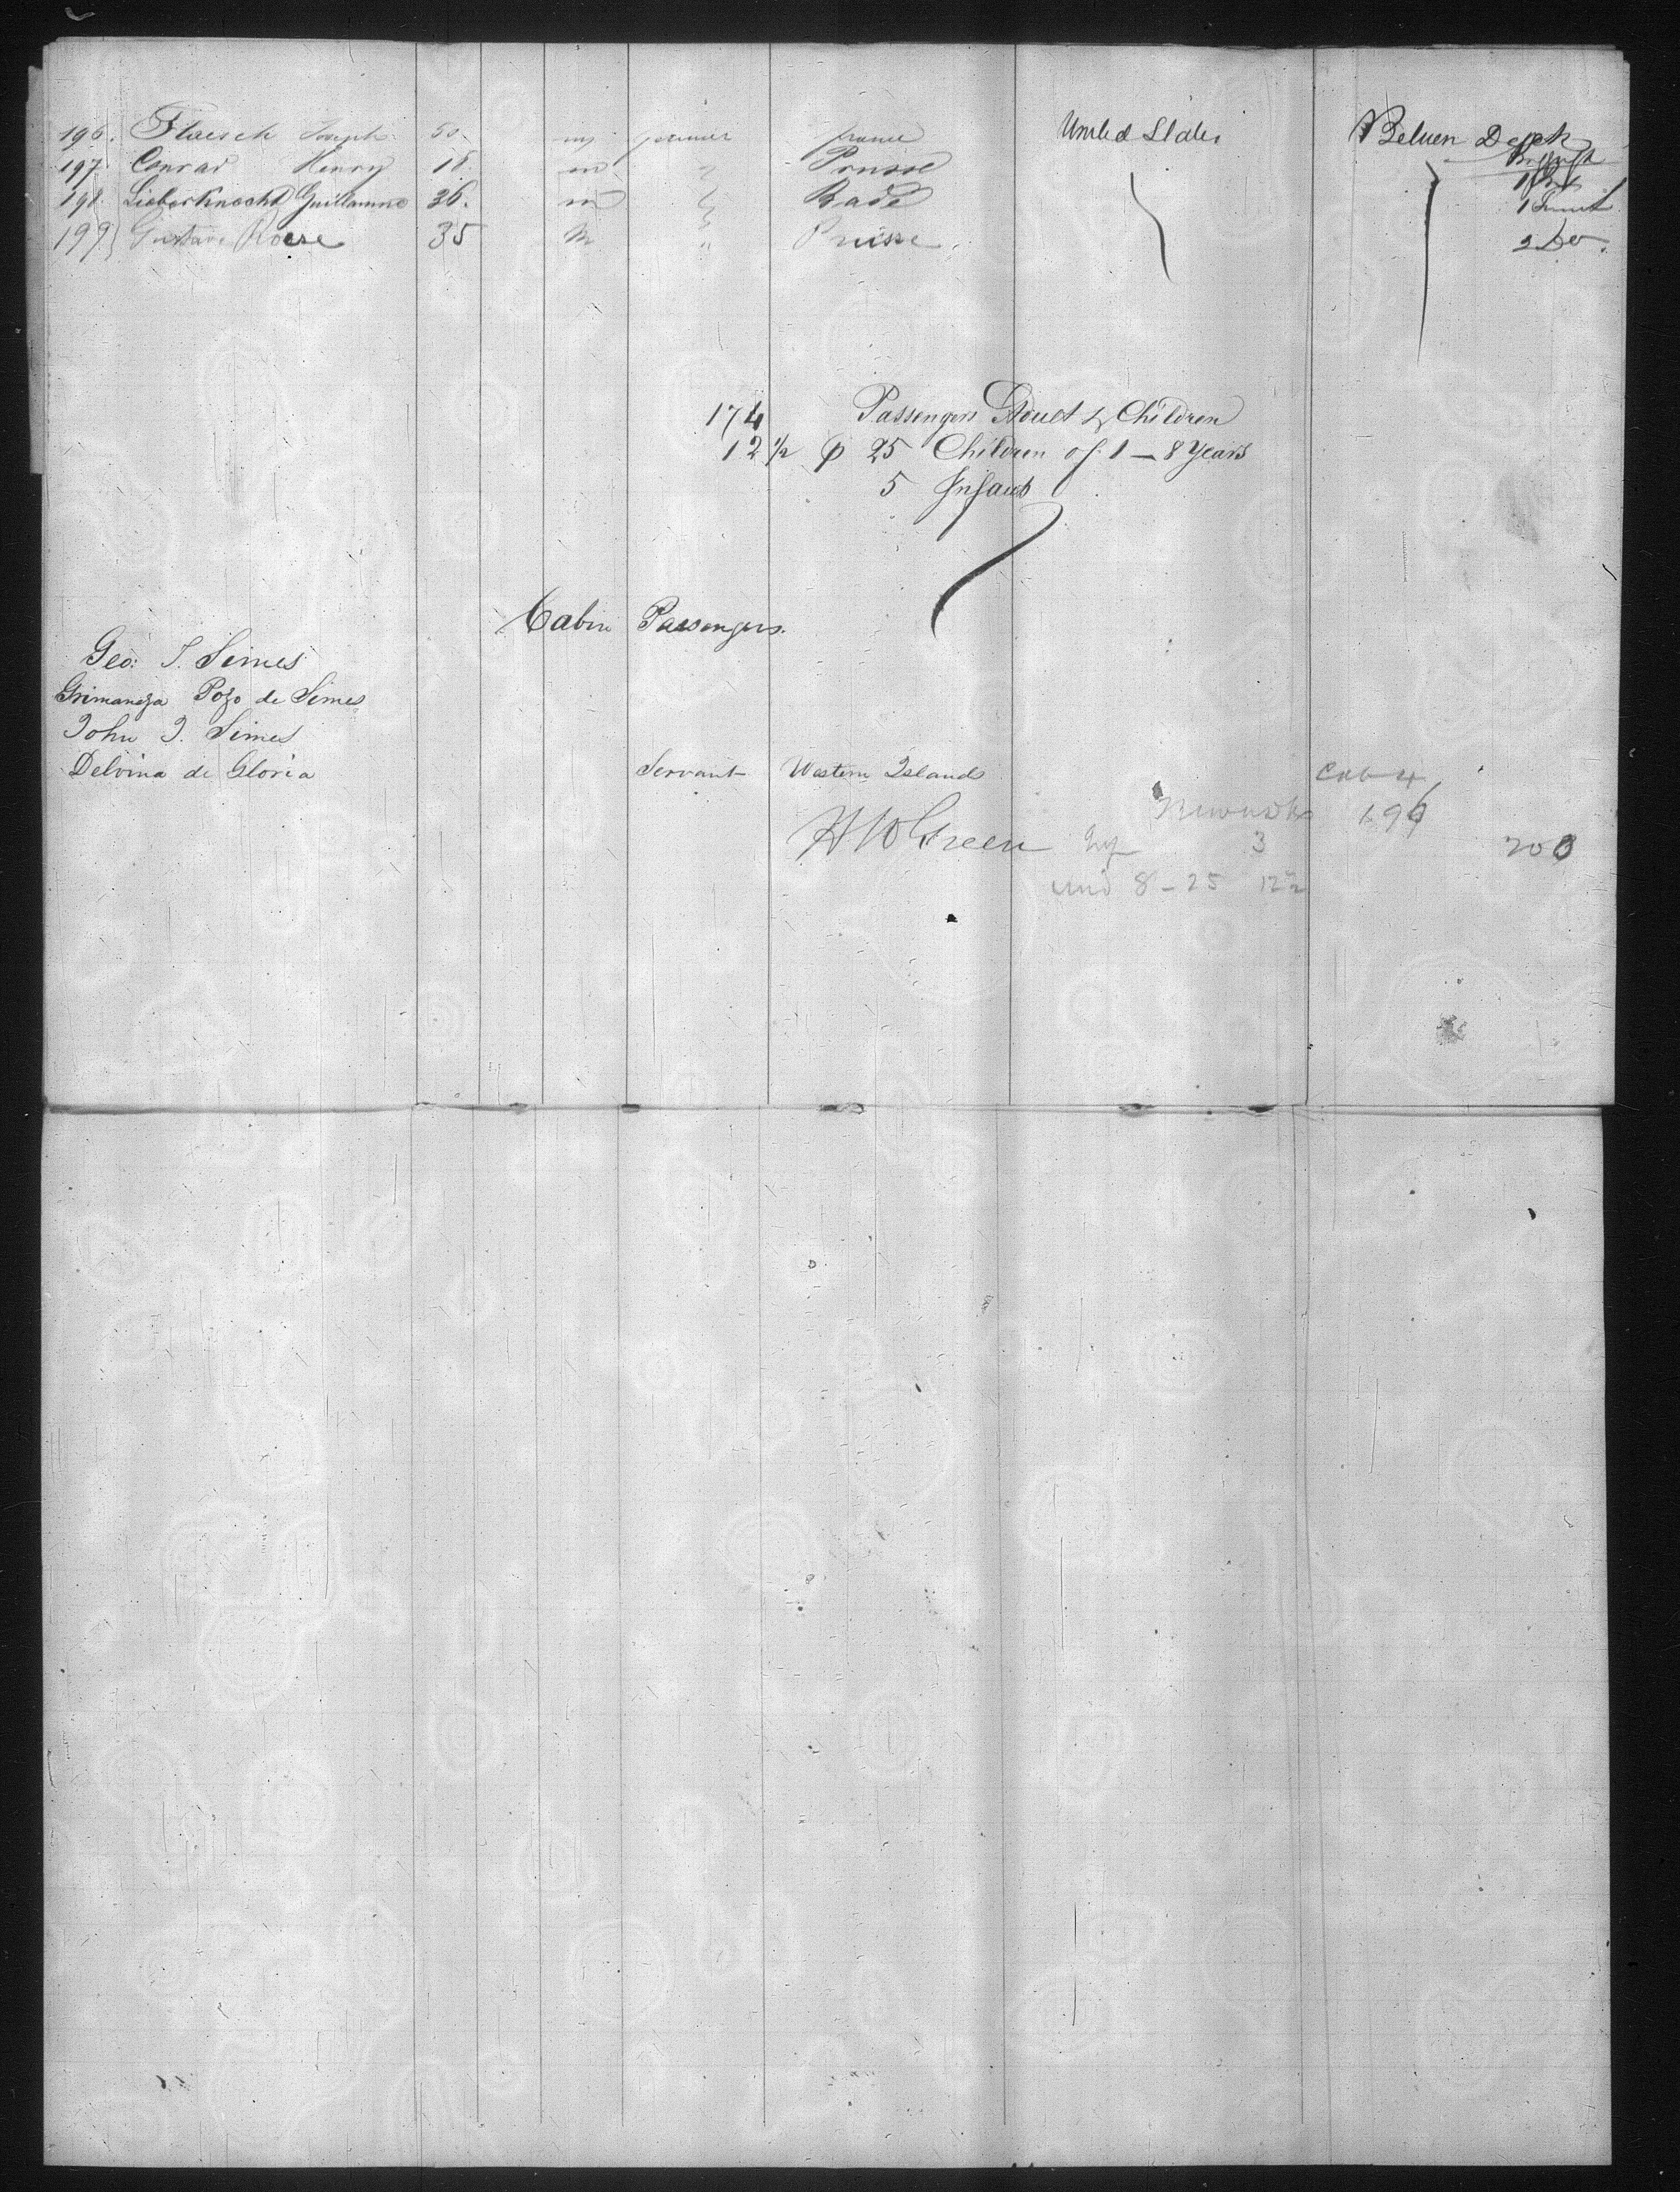 196. Flaesch Joseph 50. m fermier france United States Betwen Deck
197. Conrad Henry 18 m " Prusse
198. Lieberknecht Guillaume 36. m " Bade 1 Trunk
199 Gustave Roese 35 m " Prusse. 2 Do.
174 Passengers Adult & Children
12 1/2 p 25 Children of 1 — 8 Years
5 Infants
Cabin Passengers.
Geo: T. Simes
Grimaneza Pozo de Simes
John T. Simes
Delvina de Gloria Servant Western Islands Cab 4
196
H W Green 3 200
und 8 - 25 12 1/2